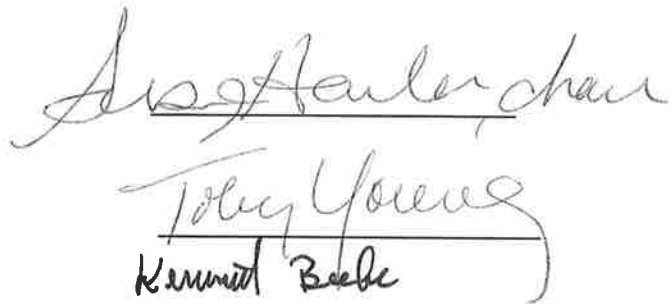 Susan Hanlon, chair
Toby Young
Kermit Beebe